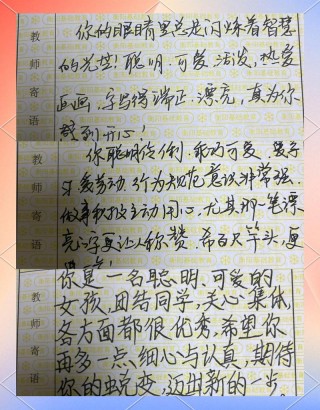 教师寄语
你的眼睛里总是闪烁着智慧
的光芒!聪明、可爱、活泼,热爱
画画,字写得端正、漂亮,真为你
感到开心!
教师寄语
你聪明伶俐,乖巧可爱,
劳动,行为规范意识非常强,
做事积极主动用心,尤其那一笔漂
亮的字更让人称赞,希百尺竿头,更
教师寄语
你是一名聪明、可爱的
女孩,团结同学,关心集体,
各方面都很优秀,希望你
再多一点细心与认真,期待
你的蜕变,迈出新的一步。